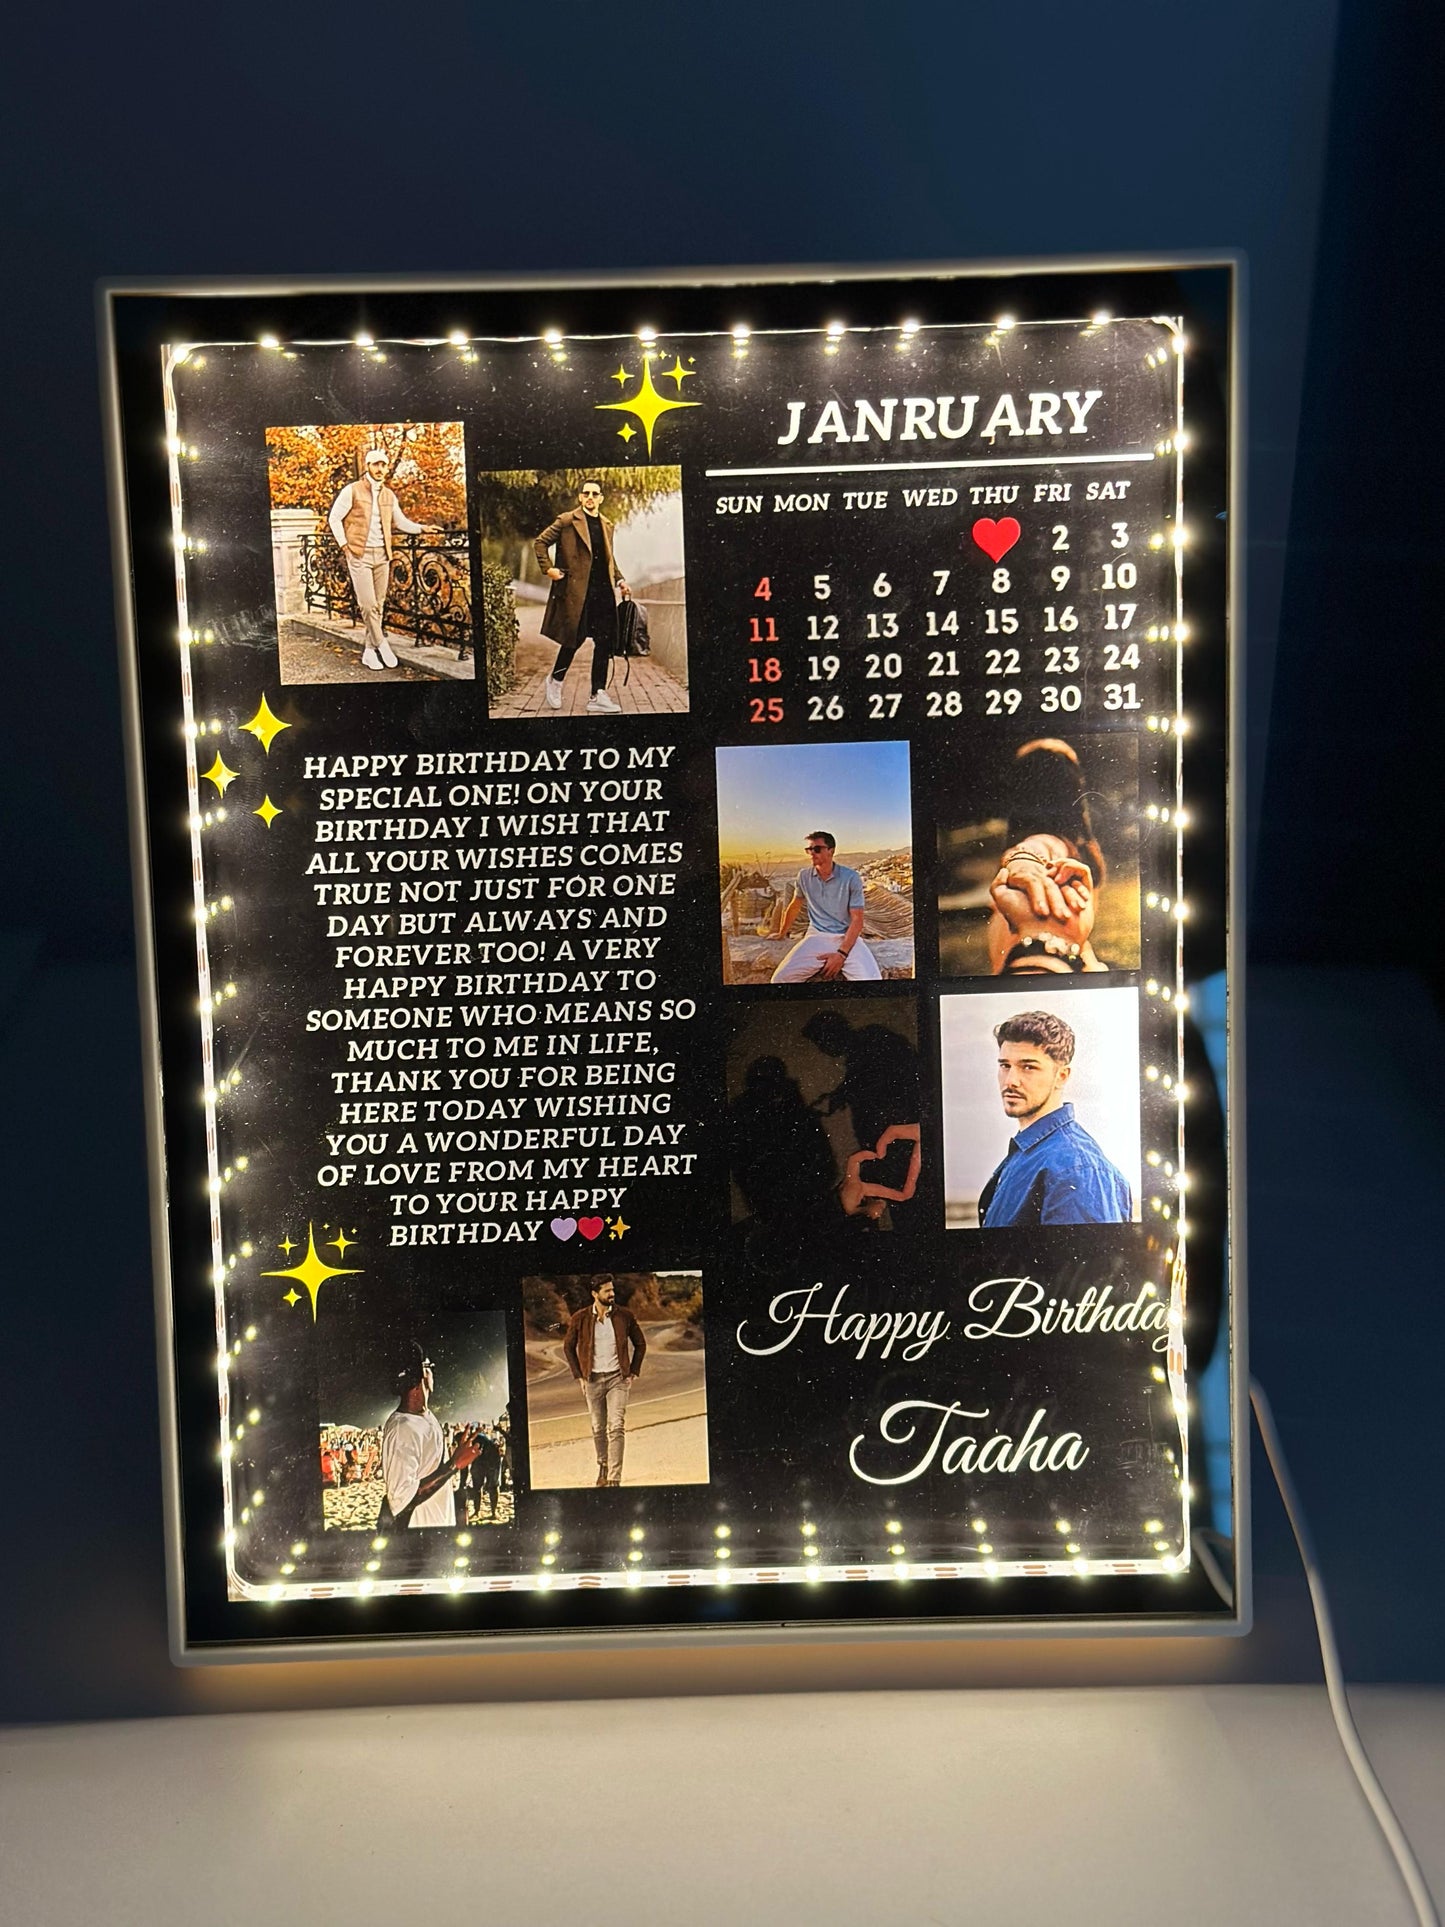 JANRUARY
SUN MON TUE WED THU FRI SAT
2 3
4 5 6 7 8 9 10
11 12 13 14 15 16 17
18 19 20 21 22 23 24
25 26 27 28 29 30 31
HAPPY BIRTHDAY TO MY
SPECIAL ONE! ON YOUR
BIRTHDAY I WISH THAT
ALL YOUR WISHES COMES
TRUE NOT JUST FOR ONE
DAY BUT ALWAYS AND
FOREVER TOO! A VERY
HAPPY BIRTHDAY TO
SOMEONE WHO MEANS SO
MUCH TO ME IN LIFE,
THANK YOU FOR BEING
HERE TODAY WISHING
YOU A WONDERFUL DAY
OF LOVE FROM MY HEART
TO YOUR HAPPY
BIRTHDAY 💜❤️✨
Happy Birthday
Taaha